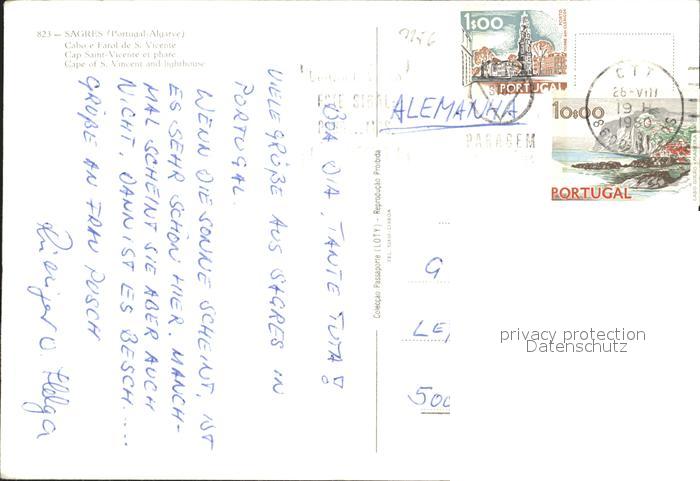 823 — SAGRES (Portugal-Algarve)
Cabo e Farol de S. Vicente
Cap Saint-Vicente et phare
Cape of S. Vincent and lighthouse
BOA DIA, TANTE TUTA!
VIELE GRÜßE AUS SAGRES IN
PORTUGAL.
WENN DIE SONNE SCHEINT, IST
ES SEHR SCHÖN HIER. MANCH-
MAL SCHEINT SIE ABER AUCH
NICHT, DANN IST ES BESCH....
GRÜßE AN FRAU PUSCH
Rüdiger u. Helga
Colecção Passaporte (LOTY) - Reprodução Proibida
ALEMANHA
1$00
PORTO
TORRE DOS CLÉRIGOS
PORTUGAL
CTT
26-VIII
19 H
1980
10$00
PORTUGAL
PARAGEM
G
LE
500
privacy protection
Datenschutz